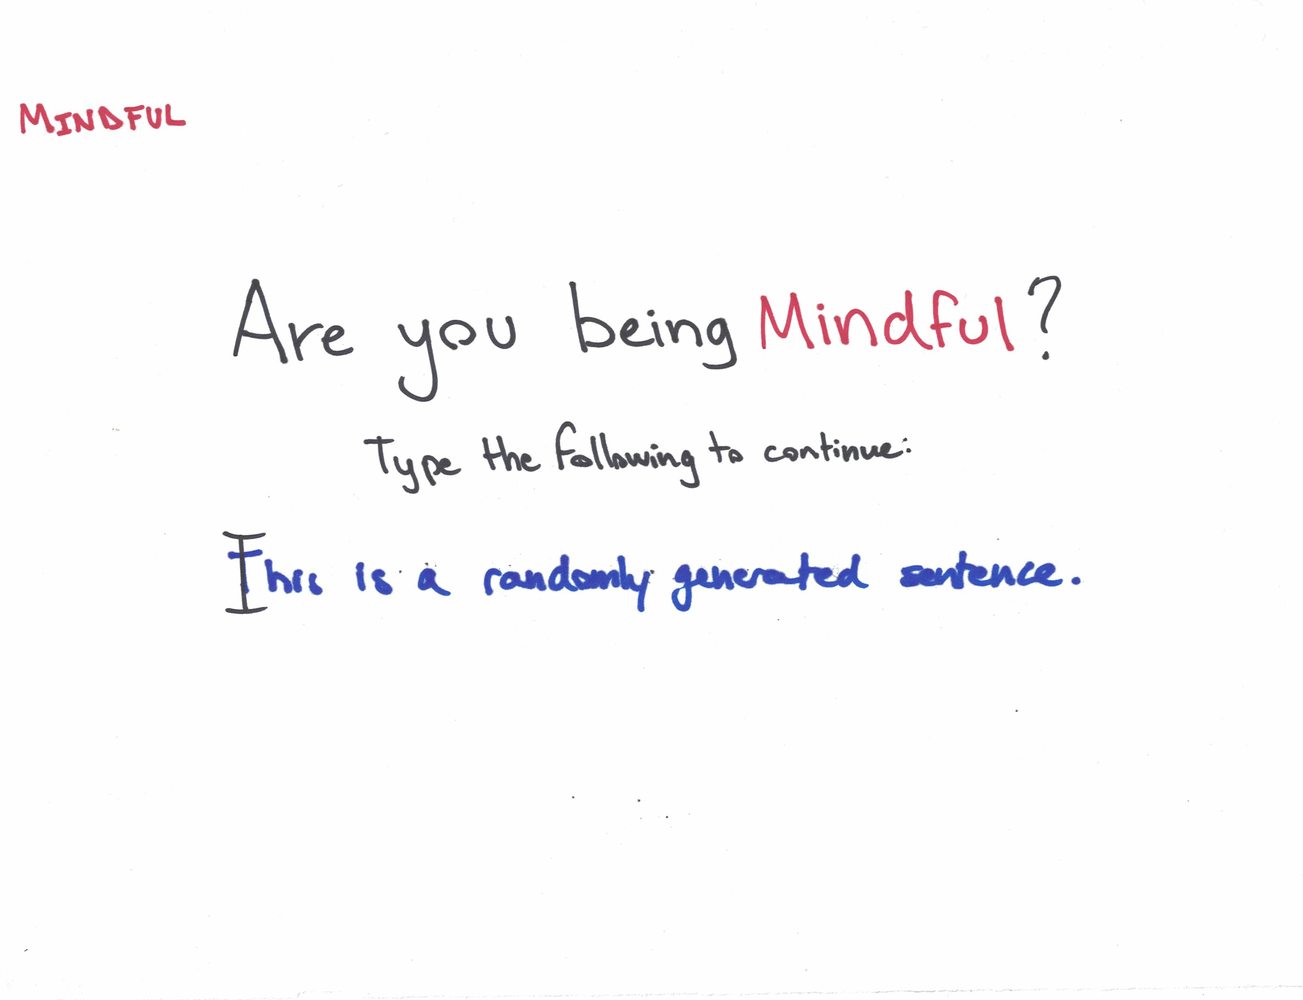 MINDFUL
Are you being Mindful?
Type the following to continue:
This is a randomly generated sentence.